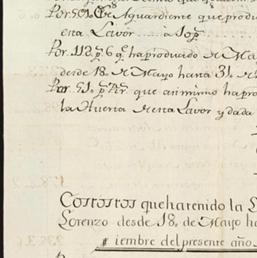 Por 51. Aguardiente que produ
esta Lavor ...... a 10 p.
Por. 118. p. 6 q. e ha producido de Ma
desde 18. de Mayo hasta 31. de
Por 51. p. que asimismo ha pro
la Huerta de esta Lavor y dada
Costostos que ha tenido la L
Lorenzo desde 18. de Mayo ha
iembre del presente año